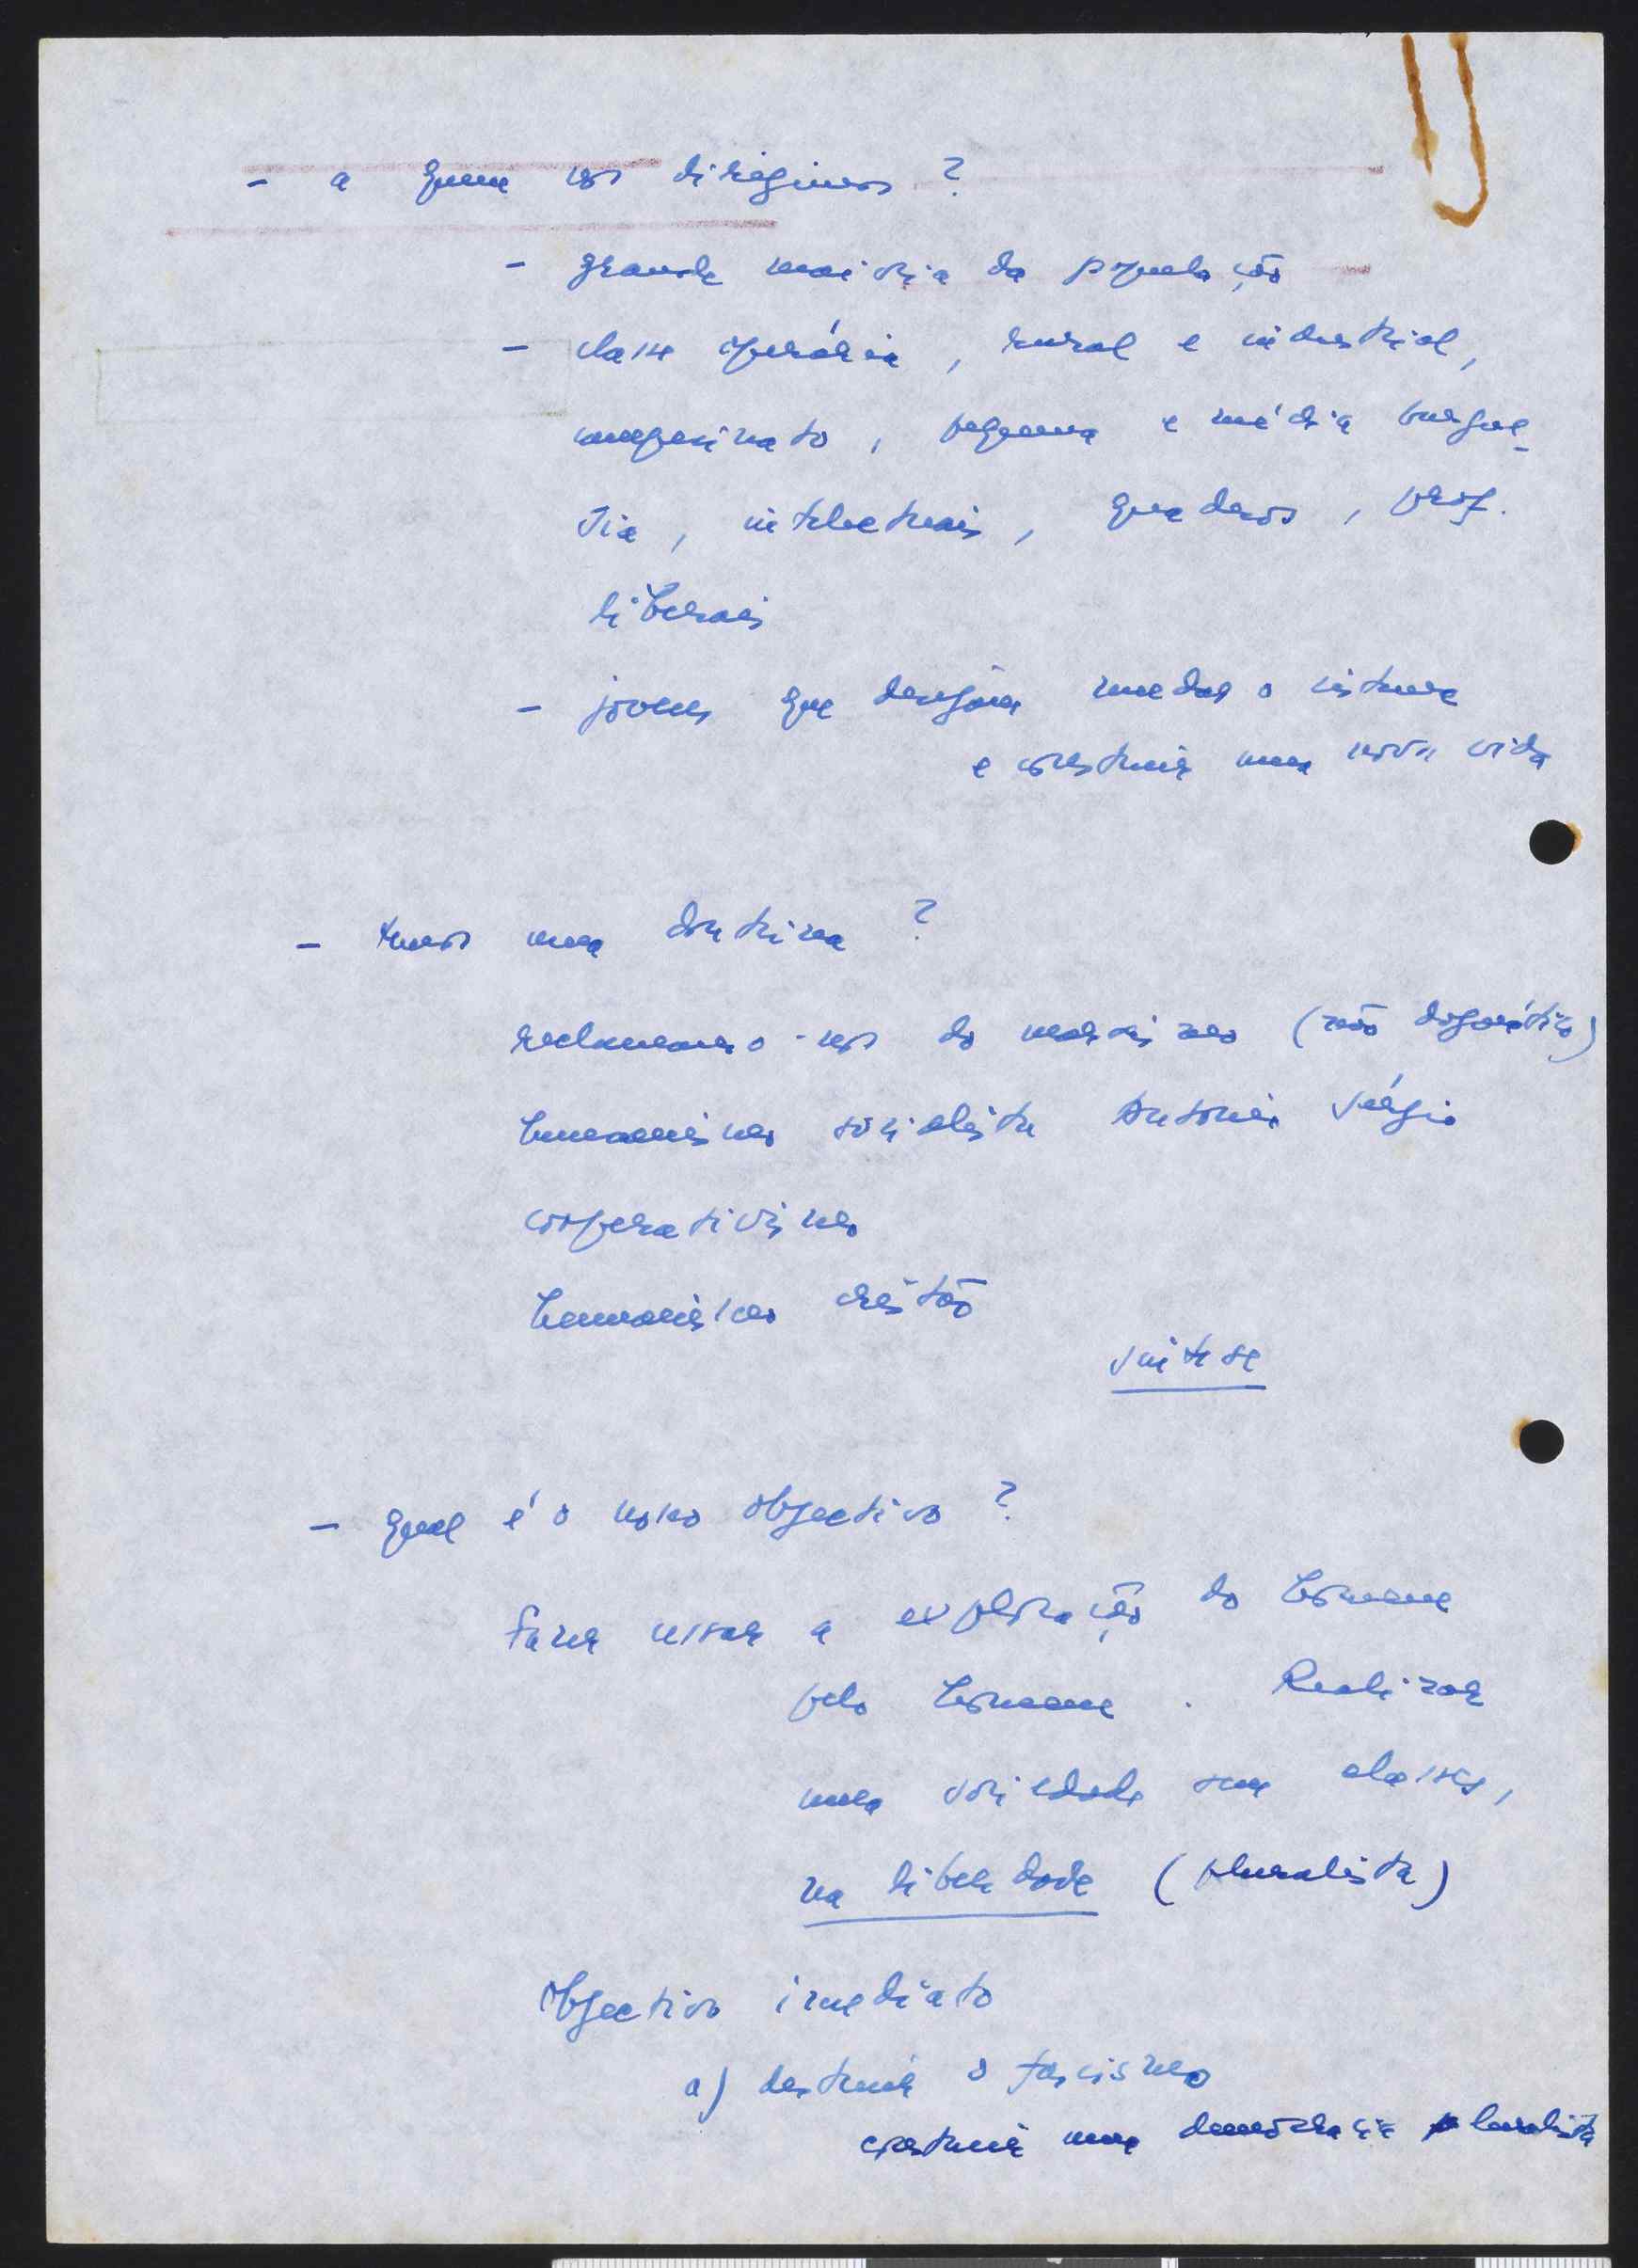 - a quem nos dirigimos ?
- grande maioria da população
- classe operária, rural e industrial,
campesinato, pequena e média burgue-
sia, intelectuais, quadros, prof.
liberais
- jovens que desejam mudar o sistema
e construir uma nova vida
- temos uma doutrina ?
reclamamo-nos do marxismo (não dogmático)
humanismo socialista António Sérgio
cooperativismo
humanismo cristão
síntese
- qual é o nosso objectivo ?
fazer cessar a exploração do homem
pelo homem. Realizar
uma sociedade sem classes,
na liberdade (pluralista)
Objectivo imediato
a) destruir o fascismo
construir uma democracia pluralista